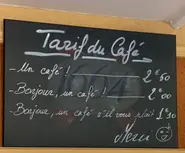 Tarif du Café
- Un café ! 2€50
- Bonjour, un café 2€00
Bonjour, un café s'il vous plait 1€50
Merci